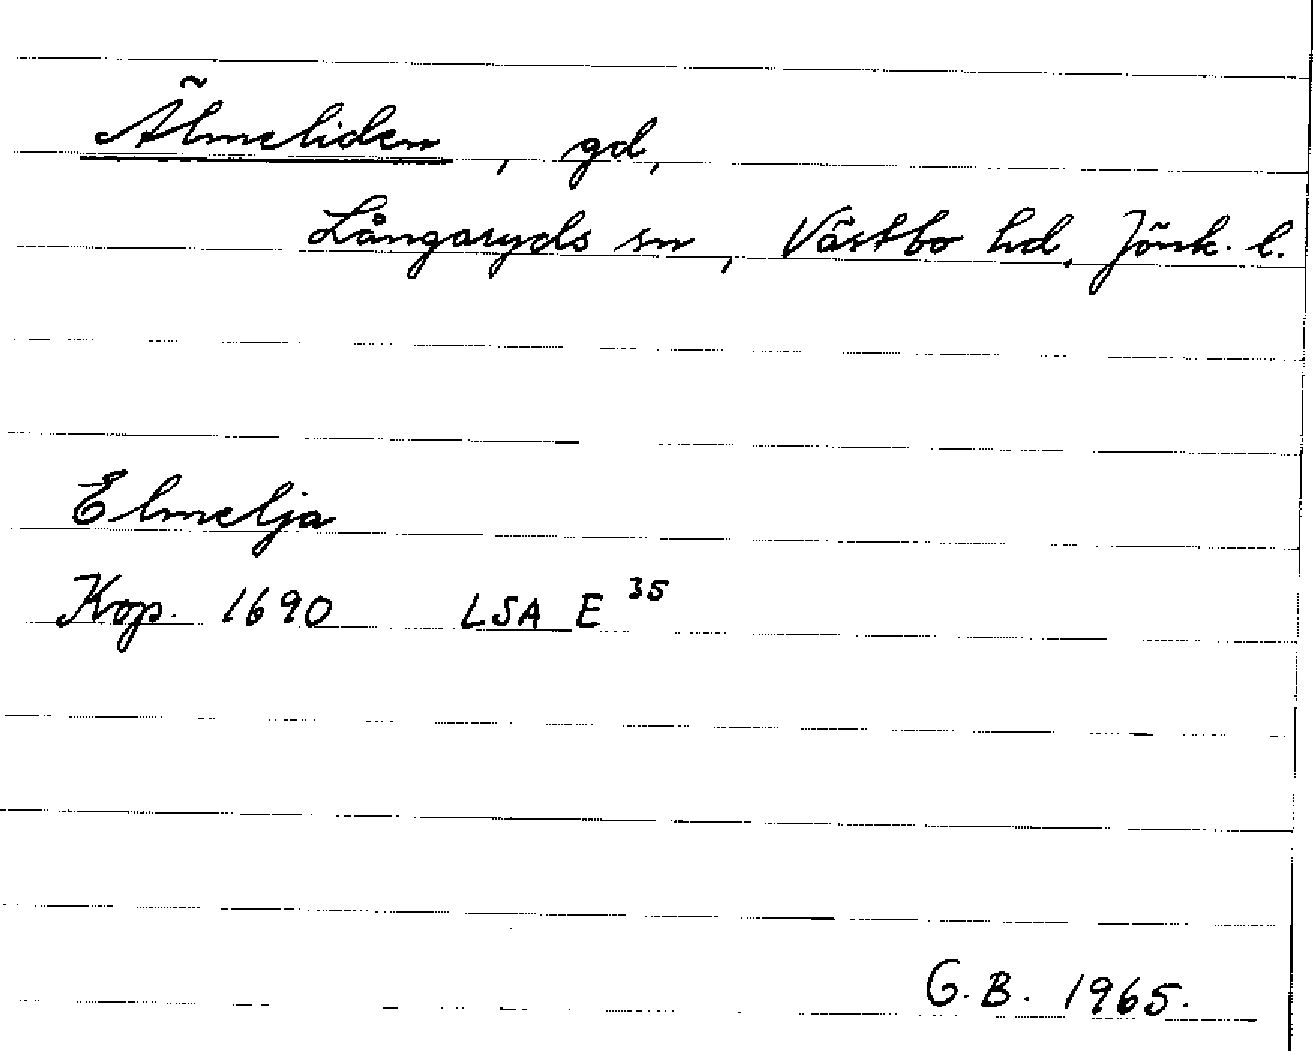 Älmeliden, gd,
Långaryds sn, Västbo hd, Jönk. l.
Elmelja
Kop. 1690 LSA E 35
G.B. 1965.